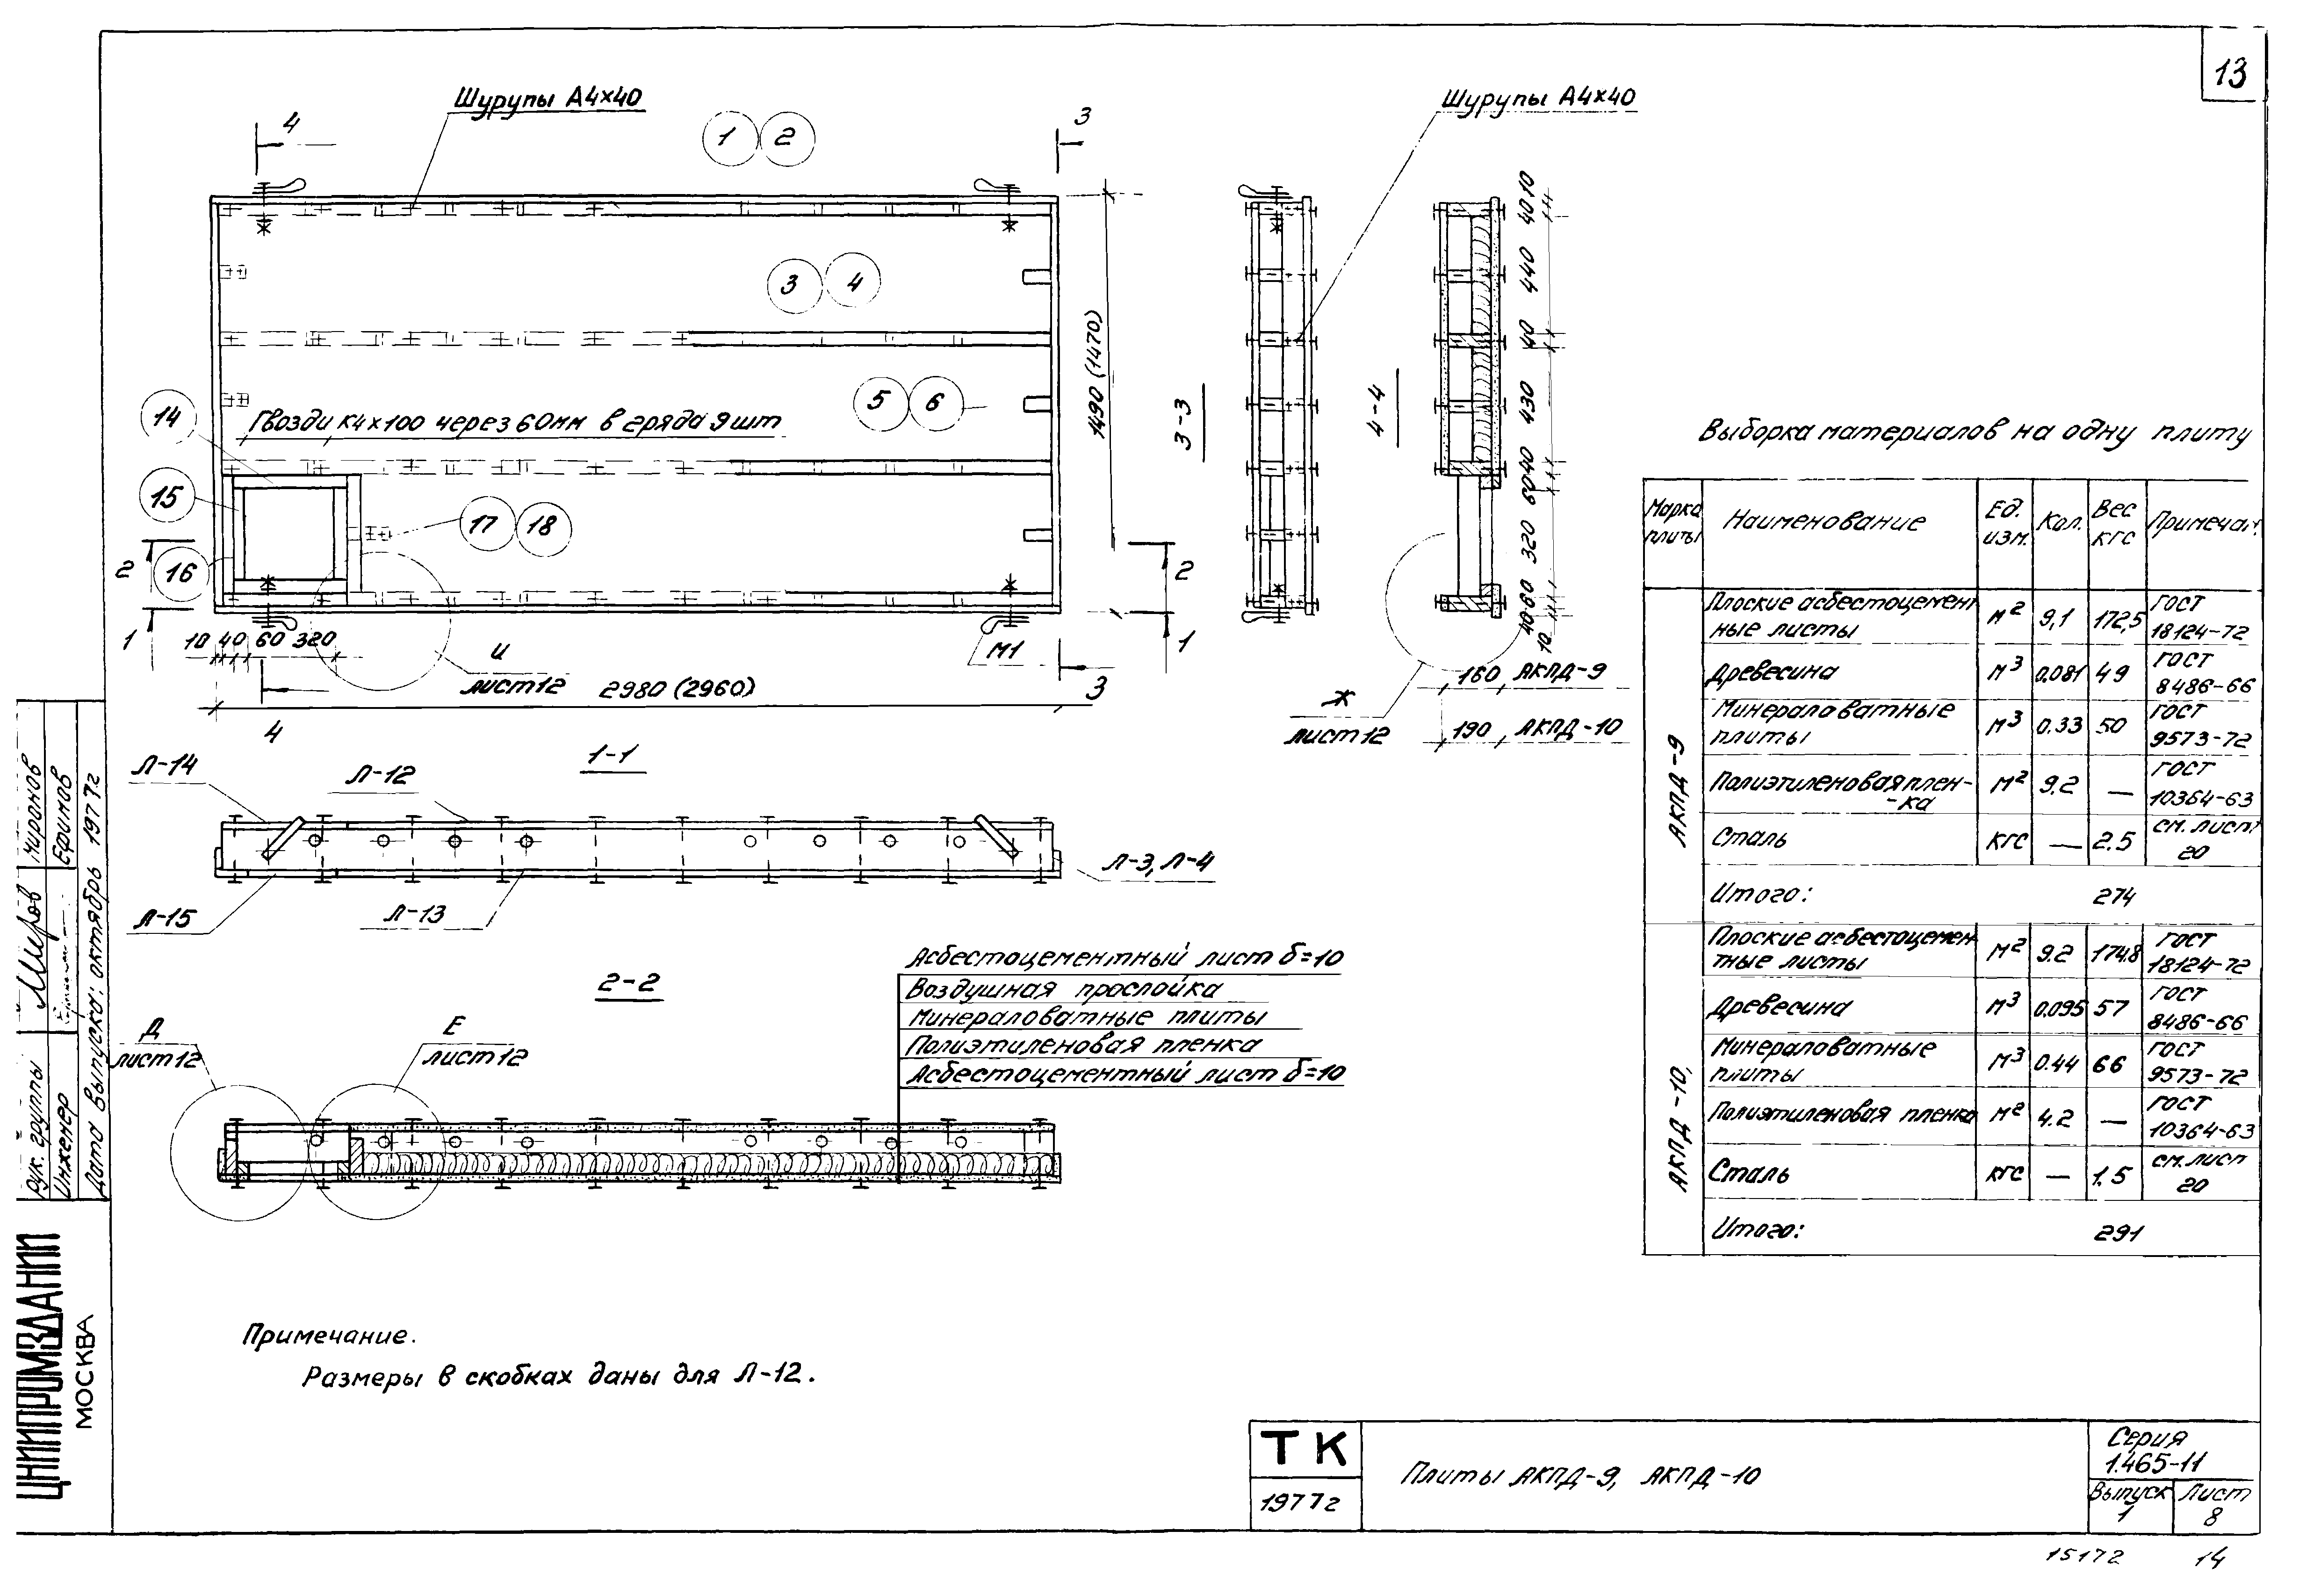 13
Шурупы А4×40
Шурупы А4×40
4
1
2
3
3
4
5
6
14
15
16
17
18
Гвозди К4×100 через 60мм в 2 ряда 9 шт
1490 (1470)
2
1
2
1
10 40 60 320
И
лист 12
М1
2980 (2960)
4
3
3-3
4-4
40 10
440
40
430
60 40
320
40 60
10
160 АКПД-9
190 АКПД-10
Ж
лист 12
1-1
Л-14
Л-12
Л-15
Л-13
Л-3, Л-4
2-2
Д
лист 12
Е
лист 12
Асбестоцементный лист δ=10
Воздушная прослойка
Минераловатные плиты
Полиэтиленовая пленка
Асбестоцементный лист δ=10
Примечание.
Размеры в скобках даны для Л-12.
Выборка материалов на одну плиту
Марка плиты Наименование Ед. изм. Кол. Вес кгс Примечан.
АКПД-9
Плоские асбестоцемент
ные листы м² 9,1 172,5 ГОСТ 18124-72
Древесина м³ 0.081 49 ГОСТ 8486-66
Минераловатные
плиты м³ 0.33 50 ГОСТ 9573-72
Полиэтиленовая плен-
-ка м² 9.2 — ГОСТ 10364-63
Сталь кгс — 2.5 см. лист 20
Итого: 274
АКПД-10,
Плоские асбестоцемен
тные листы м² 9.2 174.8 ГОСТ 18124-72
Древесина м³ 0.095 57 ГОСТ 8486-66
Минераловатные
плиты м³ 0.44 66 ГОСТ 9573-72
Полиэтиленовая пленка м² 4.2 — ГОСТ 10364-63
Сталь кгс — 1.5 см. лист 20
Итого: 291
Рук. группы Миронов
Инженер Ефимов
Дата выпуска: октябрь 1977г
ЦНИИПРОМЗДАНИЙ
МОСКВА
ТК
1977г
Плиты АКПД-9, АКПД-10
Серия
1.465-11
Выпуск
1
Лист
8
15172
14